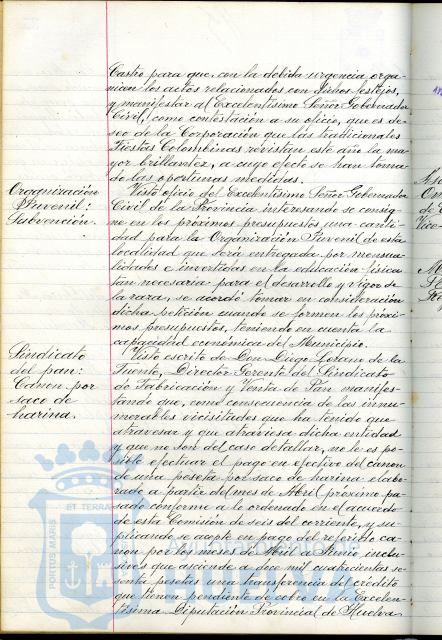 Castro para que, con la debida urgencia, orga-
nicen los actos relacionados con dichos festejos,
y manifestar al Excelentísimo Señor Gobernador
Civil, como contestación a su oficio, que es de-
seo de la Corporación que las tradicionales
Fiestas Colombinas revistan este año la ma-
yor brillantez, a cuyo efecto se han toma-
do las oportunas medidas.
Organización
Juvenil:
Subvención.
Visto oficio del Excelentísimo Señor Gobernador
Civil de la Provincia interesando se consig-
ne en los próximos presupuestos una canti-
dad para la Organización Juvenil de esta
localidad que será entregada por mensua-
lidades e invertidas en la educación física
tan necesaria para el desarrollo y vigor de
la raza, se acordó tomar en consideración
dicha petición cuando se formen los próxi-
mos presupuestos, teniendo en cuenta la
capacidad económica del Municipio.
Sindicato
del pan:
Canon por
saco de
harina.
Visto escrito de Don Diego Lozano de la
Fuente, Director Gerente del Sindicato
de Fabricación y Venta de Pan manifes-
tando que, como consecuencia de las innu-
merables vicisitudes que ha tenido que
atravesar y que atraviesa dicha entidad
y que no son del caso detallar, no le es po-
sible efectuar el pago en efectivo del canon
de una peseta por saco de harina elabo-
rado a partir del mes de Abril próximo pa-
sado conforme a lo ordenado en el acuerdo
de esta Comisión de seis del corriente, y su-
plicando se acepte en pago del referido ca-
non por los meses de Abril a Junio inclu-
sives que asciende a doce mil cuatrocientas se-
senta pesetas una transferencia del crédito
que tienen pendiente de cobro en la Excelen-
tísima Diputación Provincial de Huelva
PORTUS MARIS
ET TERRAE